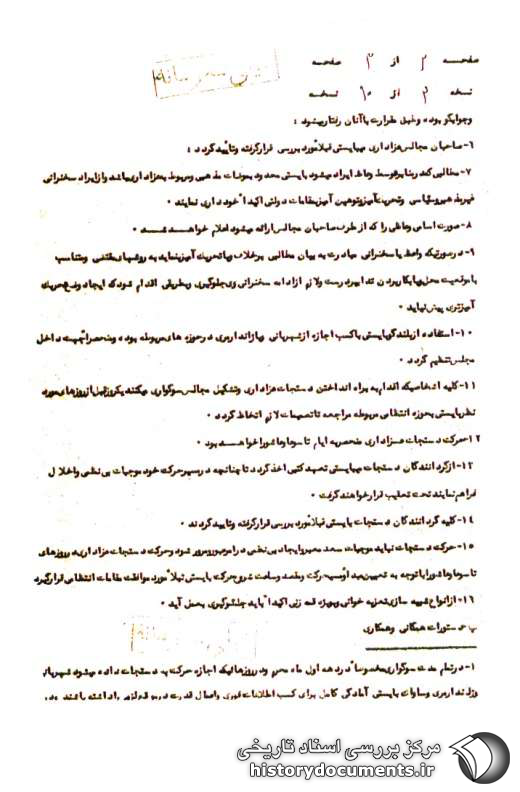 صفحه ۲ از ۳ صفحه
نسخه ۳ از ۱۰ نسخه
وجوابگو بوده وطبق مقررات باآنان رفتارمیشود :
۶- صاحبان مجالس عزاداری میبایستی قبلا"مورد بررسی قرارگرفته وتائید گردد :
۷- مطالبی که درمنابر توسط وعاظ ایراد میشود بایستی محدود بموضوعات مذهبی ومربوط بعزاداری باشد وازایراد سخنرانی
غیرمذهبی وسیاسی وتحریک آمیز وتوهین آمیز بمقامات دولتی اکیدا" خودداری نمایند ۰
۸- صورت اسامی وعاظی را که از طرف صاحبان مجالس ارائه میشود اعلام خواهد شد ۰
۹- درصورتیکه واعظ یا سخنرانی مبادرت به بیان مطالبی برخلاف ویا تحریک آمیز نماید به روشهای مقتضی ومتناسب
باموقعیت محل وبابکاربردن تدابیر درست ولازم ازادامه سخنرانی وی جلوگیری وبطریقی اقدام شود که ایجاد وضع تحریک
آمیزتری پیش نیاید ۰
۱۰- استفاده ازبلندگو بایستی باکسب اجازه ازشهربانی ویاژاندارمری درحوزه های مربوطه بوده ومنحصرا"جهت داخل
مجلس تنظیم گردد ۰
۱۱- کلیه اشخاصیکه اقدام به براه انداختن دستجات عزاداری وتشکیل مجالس سوگواری میکنند یکروز قبل ازروزهای مورد
نظر بایستی بحوزه انتظامی مربوطه مراجعه تا تصمیمات لازم اتخاذ گردد ۰
۱۲- حرکت دستجات عزاداری منحصر به ایام تاسوعا وعاشورا خواهد بود ۰
۱۳- ازگردانندگان دستجات میبایستی تعهد کتبی اخذ گردد تا چنانچه درمسیر حرکت خود موجبات بی نظمی واخلال
فراهم نمایند تحت تعقیب قرارخواهند گرفت ۰
۱۴- کلیه گردانندگان دستجات بایستی قبلا"مورد بررسی قرارگرفته وتایید گردند ۰
۱۵- حرکت دستجات نباید موجبات سد معبر وایجاد بی نظمی درامر عبور ومرور شود وحرکت دستجات عزاداری در روزهای
تاسوعا وعاشورا با توجه به تعیین مبدا" ومسیر حرکت ومقصد وساعت شروع حرکت بایستی قبلا"مورد موافقت مقامات انتظامی قرارگیرد
۱۶- ازانواع شبیه سازی تعزیه خوانی وبویژه قمه زنی اکیدا" باید جلوگیری بعمل آید ۰
پ - دستورات همگانی وهمکاری
۱- درتمام مدت سوگواری مخصوصا" دردهه اول ماه محرم ودرروزهائیکه اجازه حرکت به دستجات داده میشود شهربانی
وژاندارمری وساواک بایستی آمادگی کامل برای کسب اطلاعات فوری واعمال قدرت درمواقع لازم راداشته باشند
مرکز بررسی اسناد تاریخی
historydocuments.ir